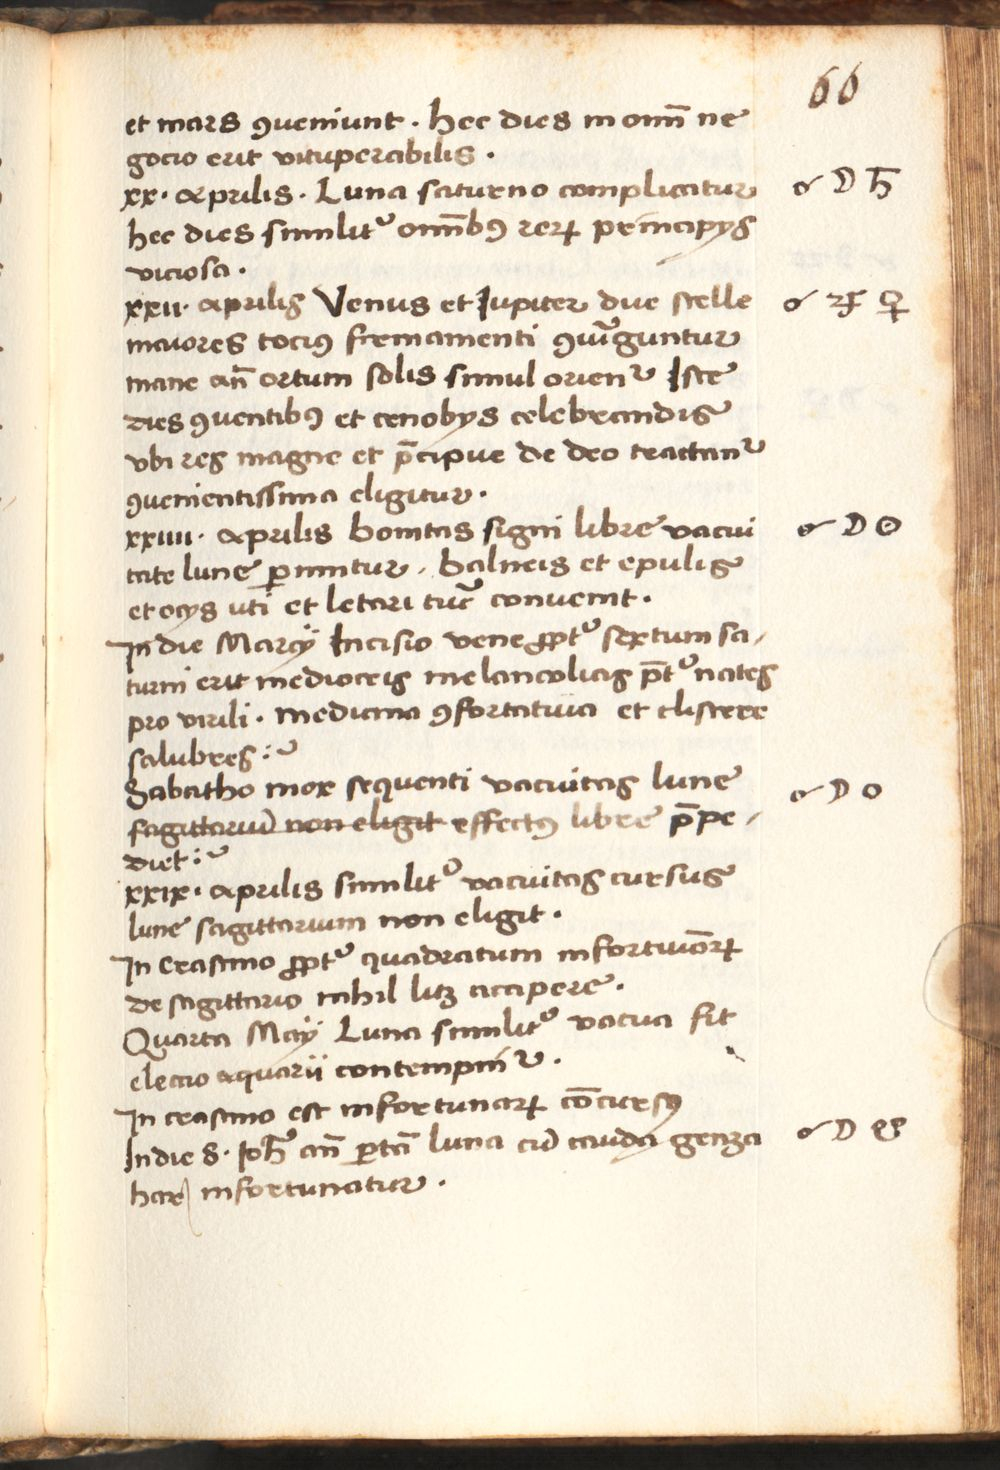 66
et mars ꝯueniunt . hec dies in om̄i ne
gocio erit vituperabilis .
xx . aprilis . Luna saturno complicatur ☌ ☽ ♄
hec dies similitᷣ om̄ibꝰ reꝝ principijs
viciosa .
xxii . aprilis Venus et Iupiter due stelle ☌ ♃ ♀
maiores tociꝰ firmamenti ꝯiūguntur
mane an̄ ortum solis simul orienᷣ Iste
dies ꝯuentibꝰ et cenobijs celebrandis
vbi res magne et p̄cipue de deo tractanᷣ
ꝯuenientissima eligitur .
xxiiii . aprilis bonitas signi libre vacui ☍ ☽ ☉
tate lune ꝑimitur . balneis et epulis
et ocijs uti et letari tūc conuenit .
In die Marcij Incisio vene ꝓptᷣ sextum sa/
turni erit mediocris melancolias p̄tᷣ nates
pro virili . medicina ꝯfortatiua et clistere
salubres :
Sabatho mox sequenti vacuitas lune ☍ ☽ ☉
sagittariū non eligit effectꝰ libre p̄pe/
diet :
xxix . aprilis similitᷣ vacuitas cursus
lune sagittarium non eligit .
In crastino ꝓptᷣ quadratum infortunioꝝ
de sagittario nihil licꝫ accipere .
Quarta Maij Luna similitᷣ vacua fit
eleccio aquarii contempniᷣ .
In crastino est infortunaꝝ cōcursꝰ
In die S . Ioh̄ an̄ portā luna cū cauda genza ☌ ☽ ☋
har infortunatur .